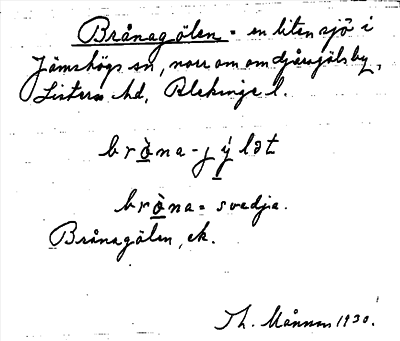 Brånagölen = en liten sjö i
Jämshögs sn, norr om
Listers hd, Blekinge l.
brò̲na-jý̲lət
brò̲na = svedja.
Brånagölen, ek.
Th. Månsson 1930.